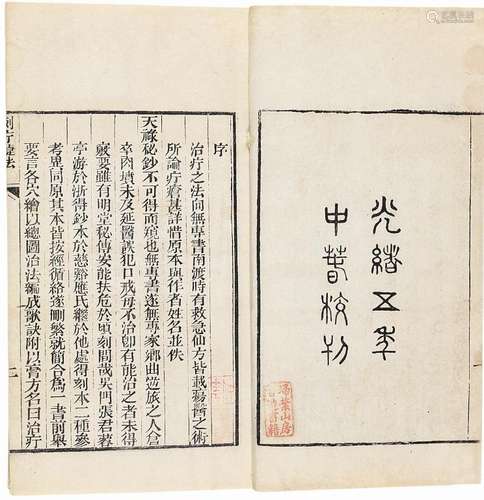 光緒五年
中春校刊
序
治疔之法向無專書南渡時有救急仙方皆載瘍醫之術
所論疔瘡甚詳惜原本與作者姓名並佚
天祿秘鈔不可得而窺也無專書遂無專家鄉曲逆旅之人倉
卒內潰未及延醫誤犯口戒每不治卽有能治之者未得
竅要雖有明堂秘傳安能扶危於頃刻間哉吳門張君葑
亭游於浙得鈔本於慈谿應氏繼於他處得刻本二種參
考異同原其本皆按經循絡遂刪繁就簡合為一書前舉
要言各穴繪以總圖治法編成歌訣附以膏方名曰治疔
刺疔捷法